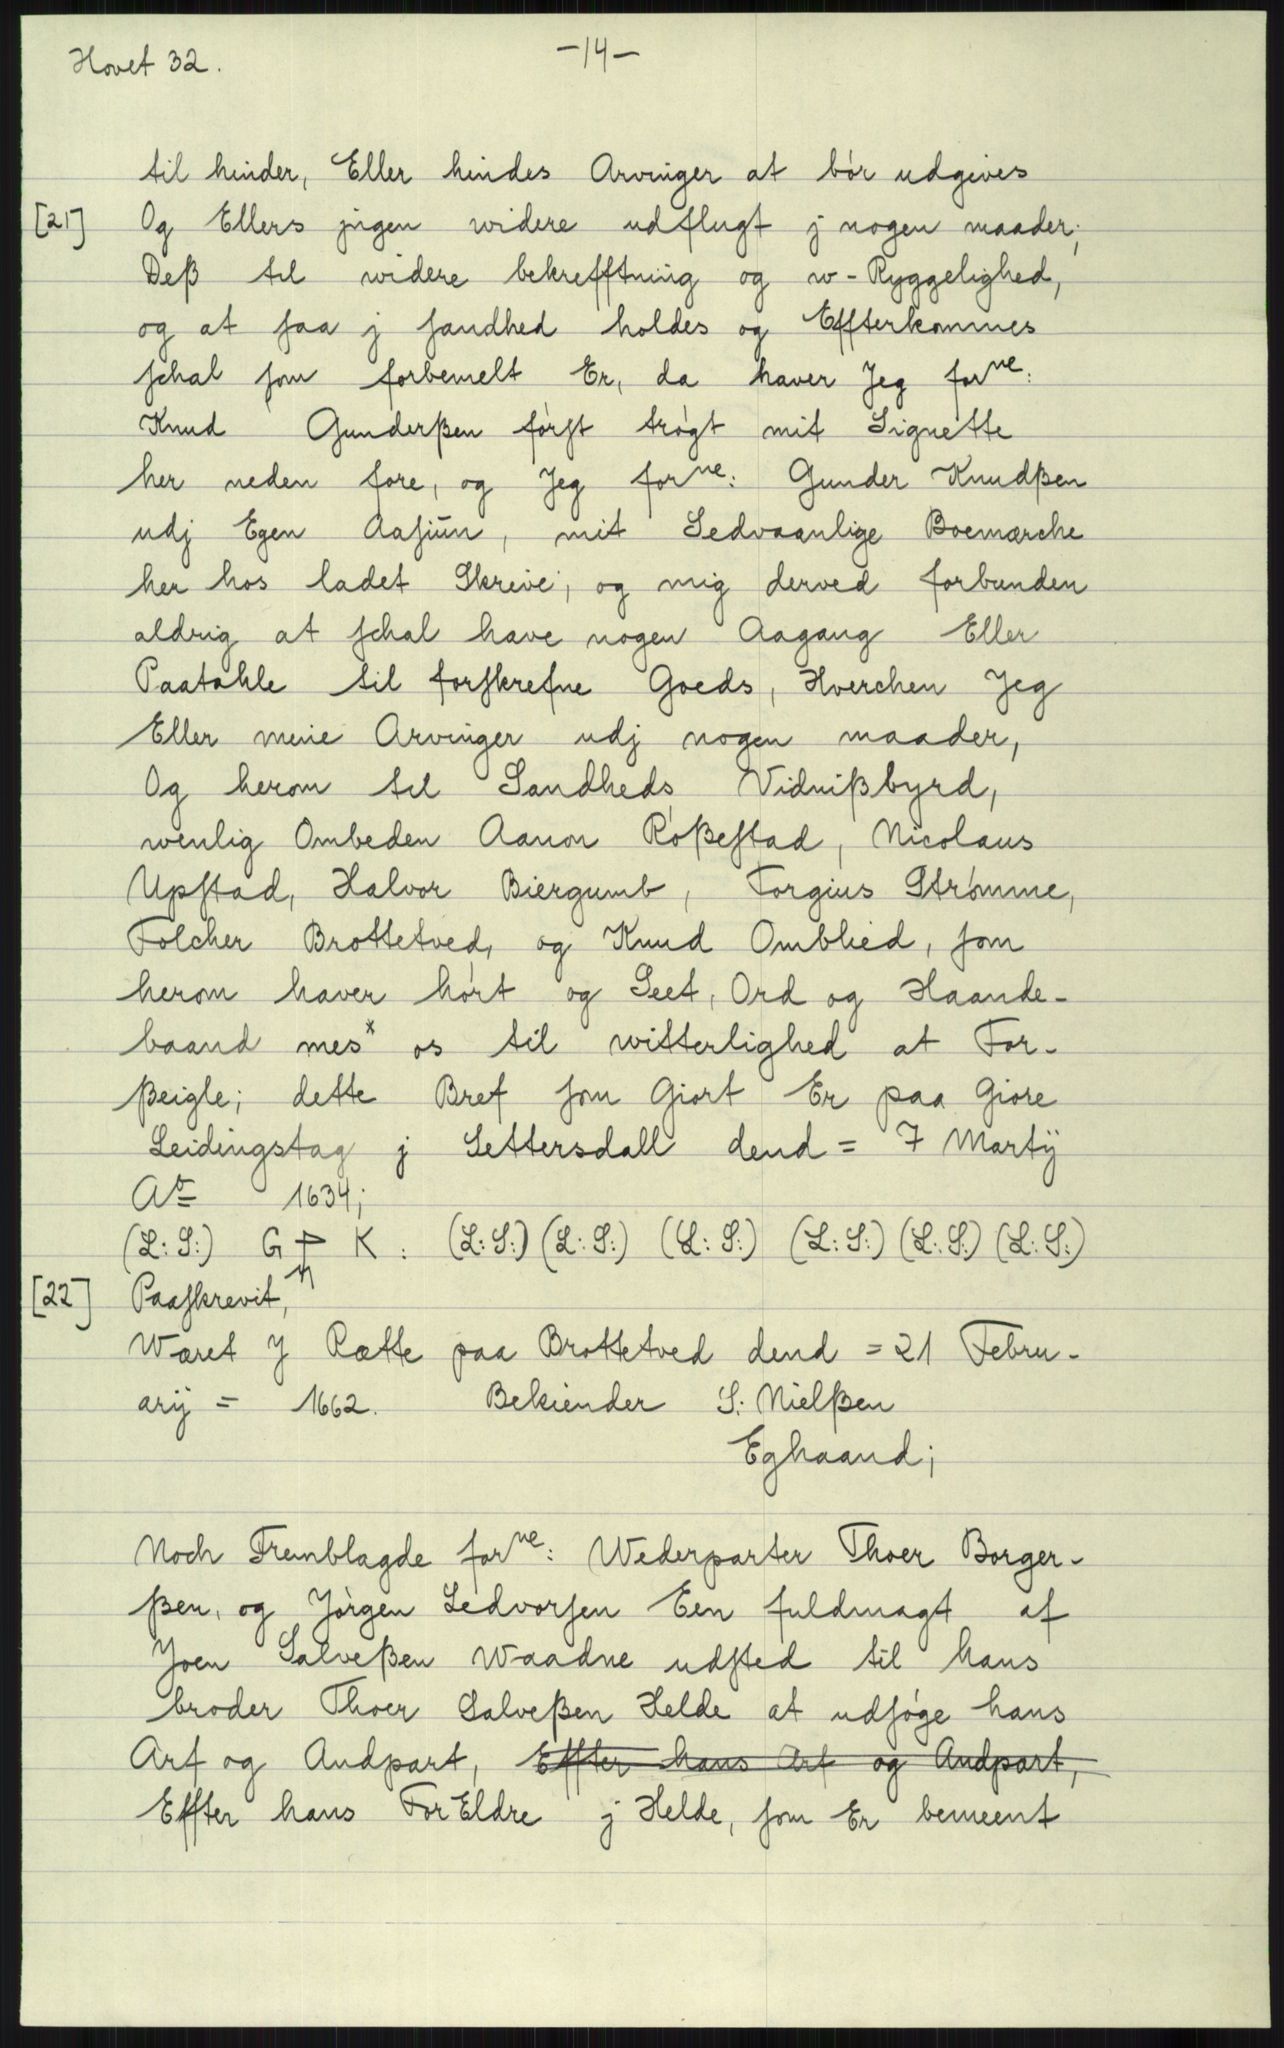 Hovet 32.
-14-
til hinder, Eller hindes Arvinger at bør udgives
[21] Og Ellers jngen widere udflugt j nogen maader;
Deß til widere bekrefftning og w-Ryggelighed,
og at ſaa j ſandhed holdes og Effterkommes
ſchal ſom forbemelt Er, da haver Jeg forne:
Knud Gunderßen førſt trøgt mit Signette
her neden fore, og Jeg forne: Gunder Knudßen
udj Egen Aaſiun, mit Sedvaanlige Boemærche
her hos ladet Skrive; og mig derved forbunden
aldrig at ſchal have nogen Aagang Eller
Paatahle til forſkrefne Goeds, Hverchen Jeg
Eller mine Arvinger udj nogen maader,
Og herom til Sandheds Vidnißbyrd,
wenlig Ombeden Aanon Roßeſtad, Nicolaus
Upſtad, Halvor Biergumb, Torgius Strømme,
Folcher Brottetved, og Knud Omblied, ſom
herom haver hørt og Seet, Ord og Haande-
baand mes* os til witterlighed at For-
ßeigle; dette Bref ſom Giort Er paa Giore
Leidingstag j Settersdall dend = 7 Martÿ
Ao 1634;
(L:S:) G K: (L:S:) (L:S:) (L:S:) (L:S:) (L:S:) (L:S:)
[22] Paaſkrevit,
Wæret J Rætte paa Brottetved dend = 21 Febru-
arÿ = 1662. Bekiender S: Nielßen
Eghaand;
Noch Fremblagde forne: Wederparter Thoer Borger-
ßen, og Jørgen Sedvorſen Een fuldmagt af
Joen Salveßen Waadne udſted til hans
broder Thoer Salveßen Helde at udſøge hans
Arf og Andpart, Effter hans Arf og Andpart,
Effter hans ForEldre j Helde, ſom Er bemeent